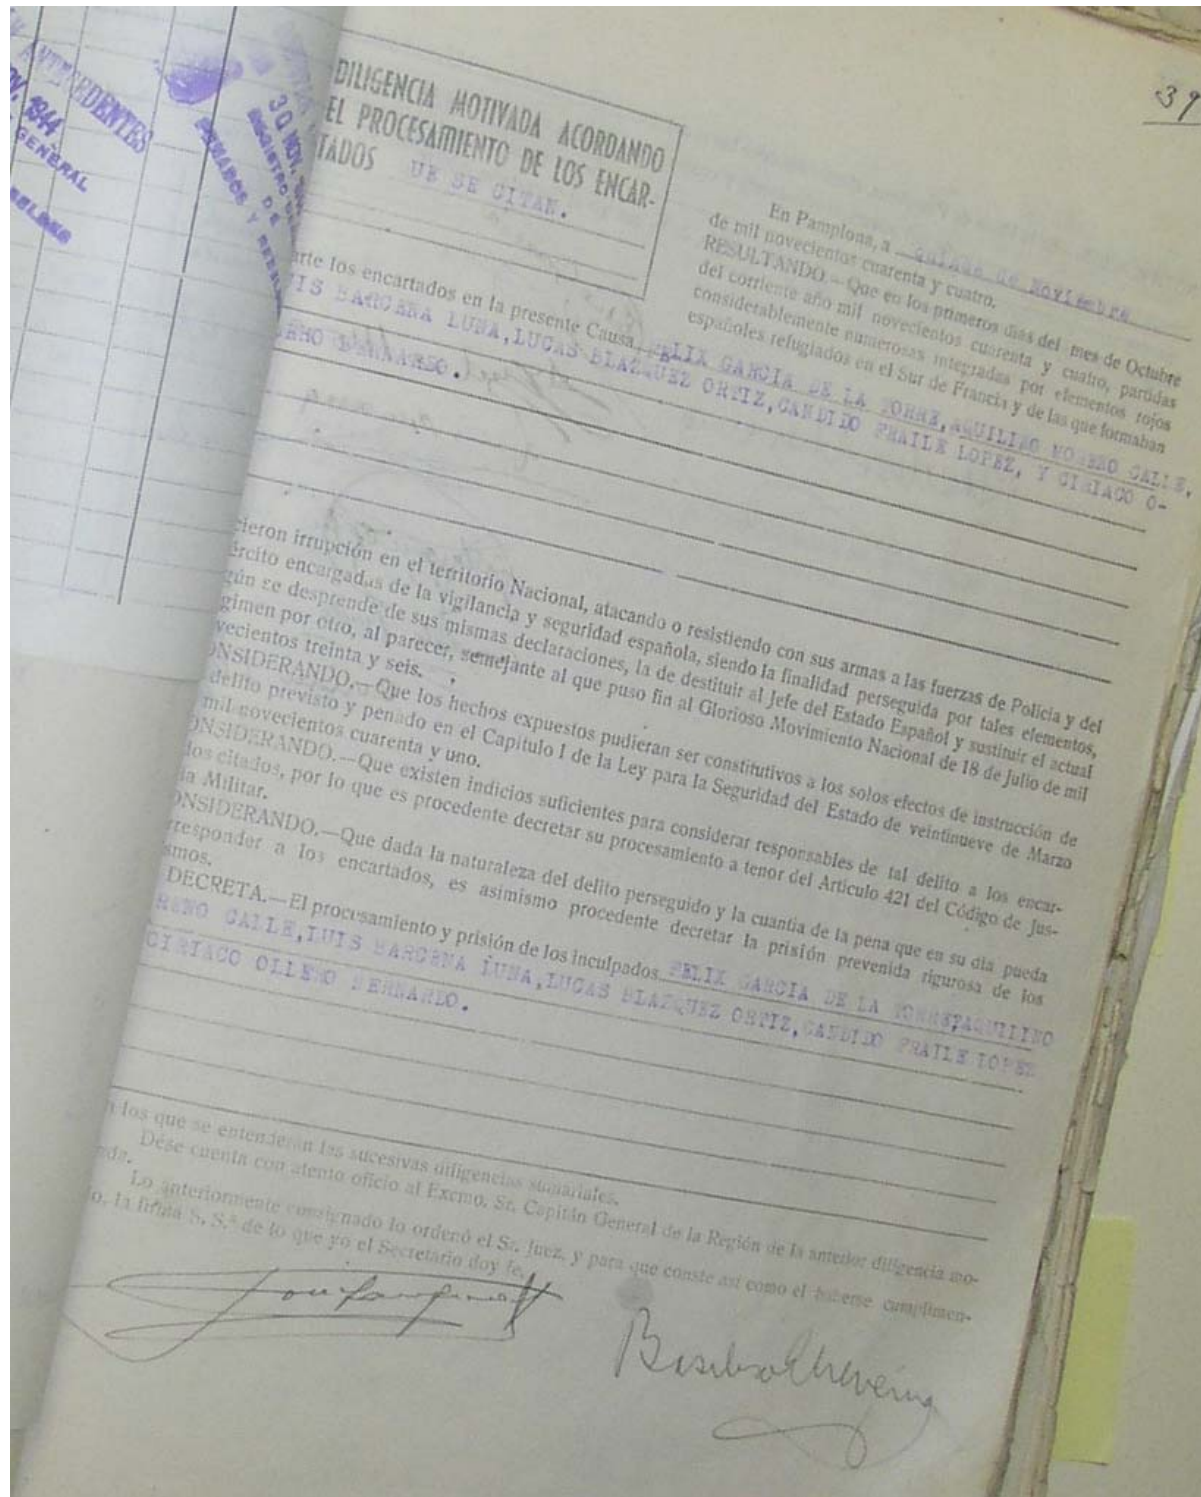 ANTECEDENTES
NOV. 1944
GENERAL
REBELDES
30 NOV.
REGISTRO
DE
PENADOS Y REBELDES
39
DILIGENCIA MOTIVADA ACORDANDO
EL PROCESAMIENTO DE LOS ENCAR-
TADOS UE SE CITAN.
En Pamplona, a quince de Noviembre
de mil novecientos cuarenta y cuatro.
RESULTANDO.—Que en los primeros dias del mes de Octubre
del corriente año mil novecientos cuarenta y cuatro, partidas
considerablemente numerosas integradas por elementos rojos
españoles refugiados en el Sur de Francia y de las que formaban
arte los encartados en la presente Causa, FELIX GARCIA DE LA TORRE, AQUILINO MORENO CALLE,
UIS BARCENA LUNA, LUCAS BLAZQUEZ ORTIZ, CANDIDO FRAILE LOPEZ, Y CIRIACO O-
BERNARDO.
cieron irrupción en el territorio Nacional, atacando o resistiendo con sus armas a las fuerzas de Policia y del
ército encargadas de la vigilancia y seguridad española, siendo la finalidad perseguida por tales elementos,
gún se desprende de sus mismas declaraciones, la de destituir al Jefe del Estado Español y sustituir el actual
gimen por otro, al parecer, semejante al que puso fin al Glorioso Movimiento Nacional de 18 de Julio de mil
vecientos treinta y seis.
ONSIDERANDO.—Que los hechos expuestos pudieran ser constitutivos a los solos efectos de instrucción de
delito previsto y penado en el Capitulo I de la Ley para la Seguridad del Estado de veintinueve de Marzo
mil novecientos cuarenta y uno.
ONSIDERANDO.—Que existen indicios suficientes para considerar responsables de tal delito a los encar-
dos citados, por lo que es procedente decretar su procesamiento a tenor del Articulo 421 del Código de Jus-
ia Militar.
ONSIDERANDO.—Que dada la naturaleza del delito perseguido y la cuantia de la pena que en su dia pueda
rresponder a los encartados, es asimismo procedente decretar la prisión prevenida rigurosa de los
smos.
DECRETA.—El procesamiento y prisión de los inculpados FELIX GARCIA DE LA TORRE, AQUILINO
RENO CALLE, LUIS BARCENA LUNA, LUCAS BLAZQUEZ ORTIZ, CANDIDO FRAILE LOPEZ
CIRIACO OLLERO BERNARDO.
n los que se entenderán las sucesivas diligencias sumariales.
Dése cuenta con atento oficio al Excmo. Sr. Capitán General de la Región de la anterior diligencia mo-
ada.
Lo anteriormente consignado lo ordenó el Sr. Juez, y para que conste asi como el haberse cumplimen-
o, la firma S. S.ª de lo que yo el Secretario doy fe.